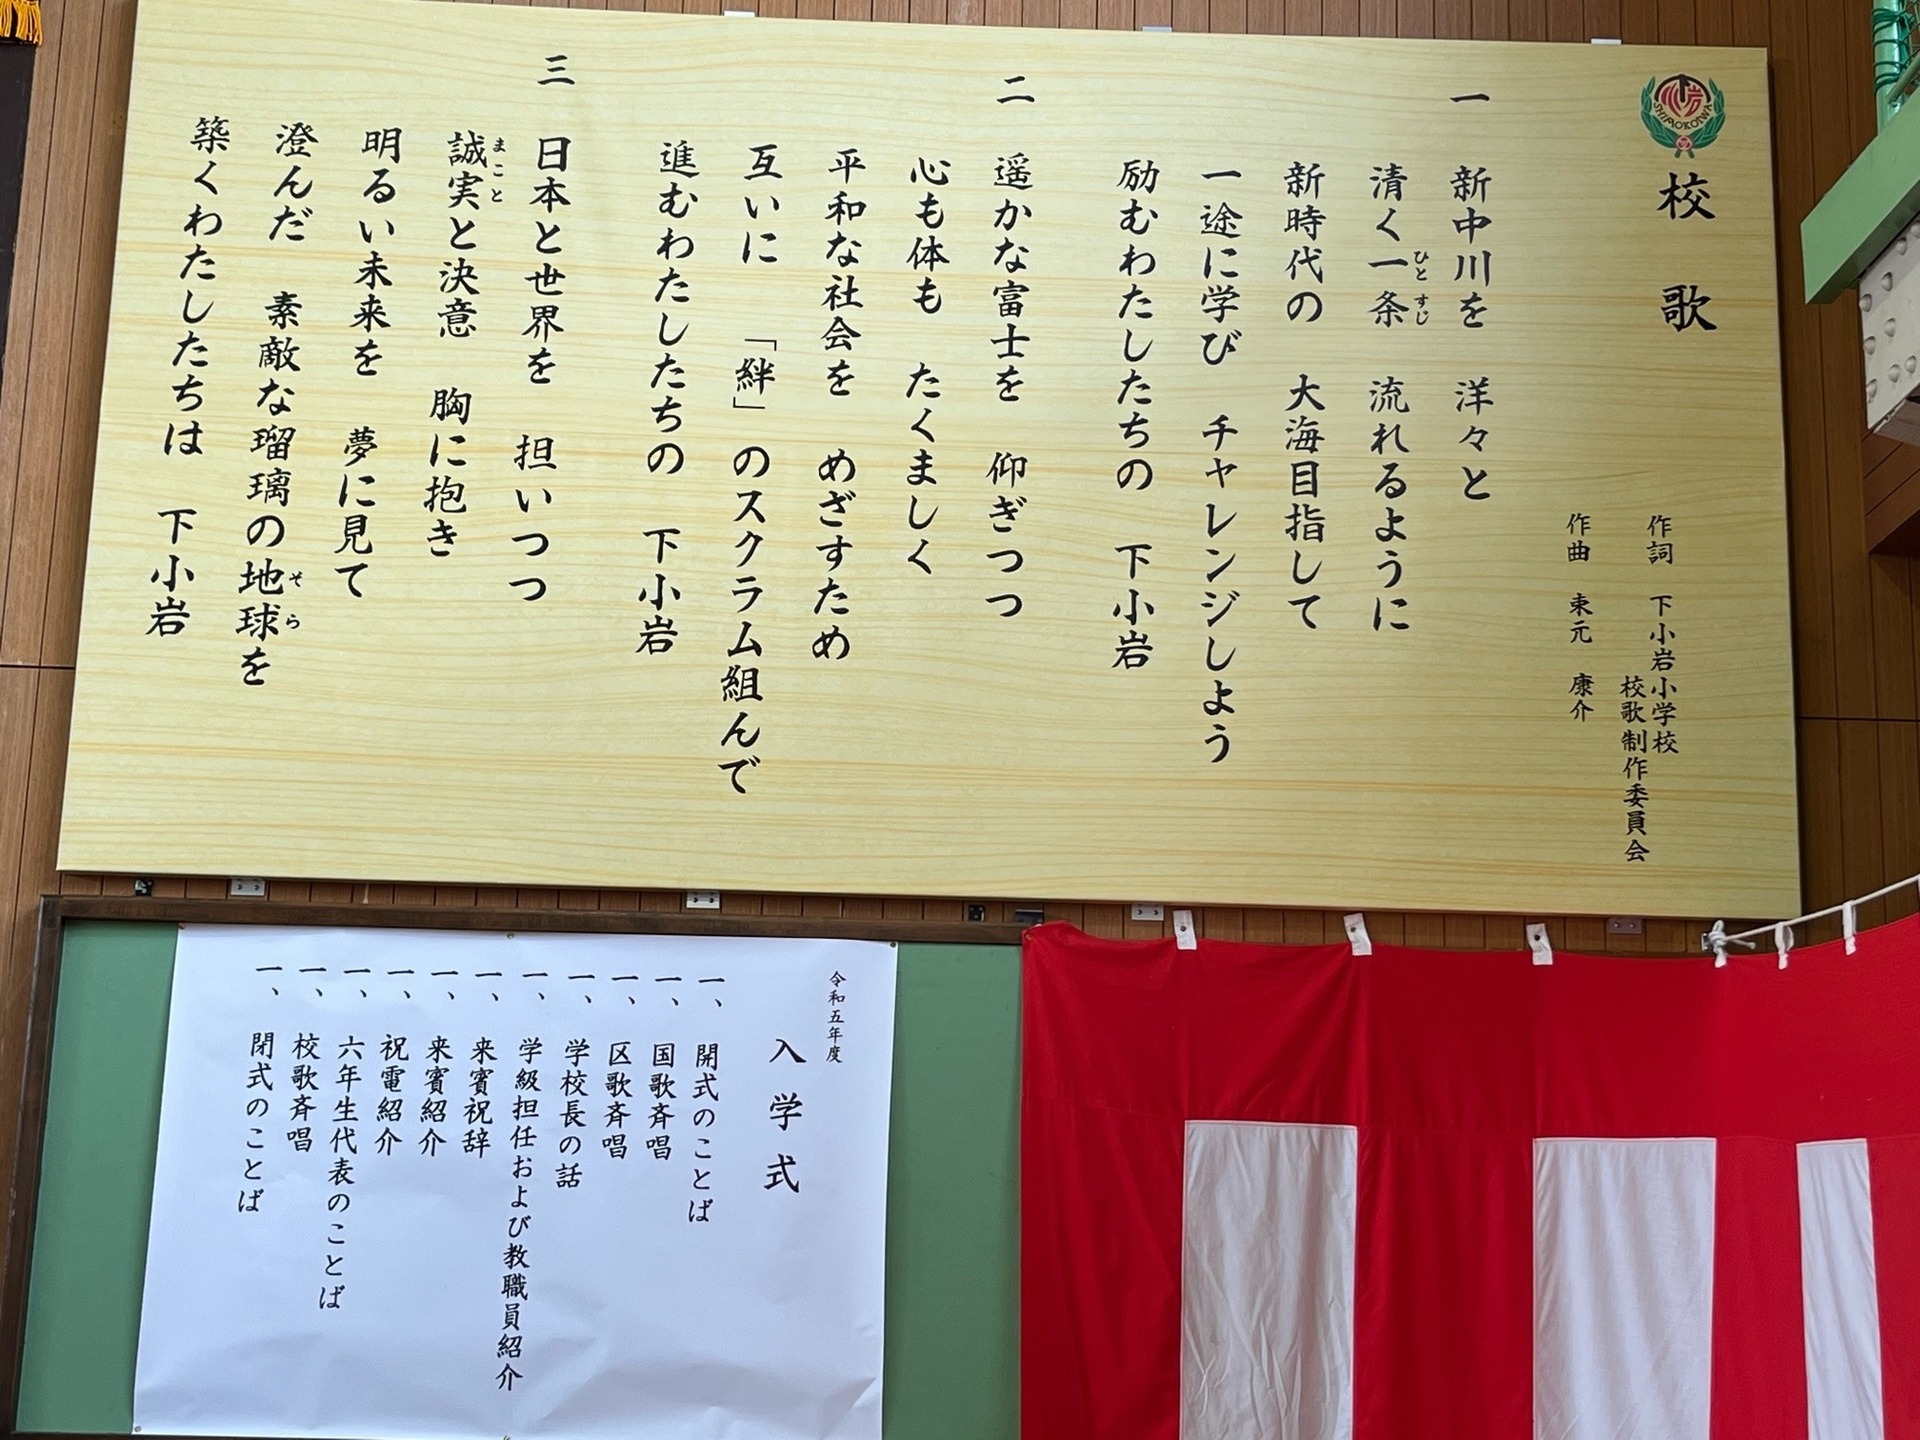 下小岩
SHIMOKOIWA
校　歌
作詞　下小岩小学校
校歌制作委員会
作曲　東元　康介
一
新中川を　洋々と
清く一条　流れるように
ひとすじ
新時代の　大海目指して
一途に学び　チャレンジしよう
励むわたしたちの　下小岩
二
遥かな富士を　仰ぎつつ
心も体も　たくましく
平和な社会を　めざすため
互いに　「絆」のスクラム組んで
進むわたしたちの　下小岩
三
日本と世界を　担いつつ
誠実と決意　胸に抱き
まこと
明るい未来を　夢に見て
澄んだ　素敵な瑠璃の地球を
そら
築くわたしたちは　下小岩
令和五年度
入学式
一、開式のことば
一、国歌斉唱
一、区歌斉唱
一、学校長の話
一、学級担任および教職員紹介
一、来賓祝辞
一、来賓紹介
一、祝電紹介
一、六年生代表のことば
一、校歌斉唱
一、閉式のことば